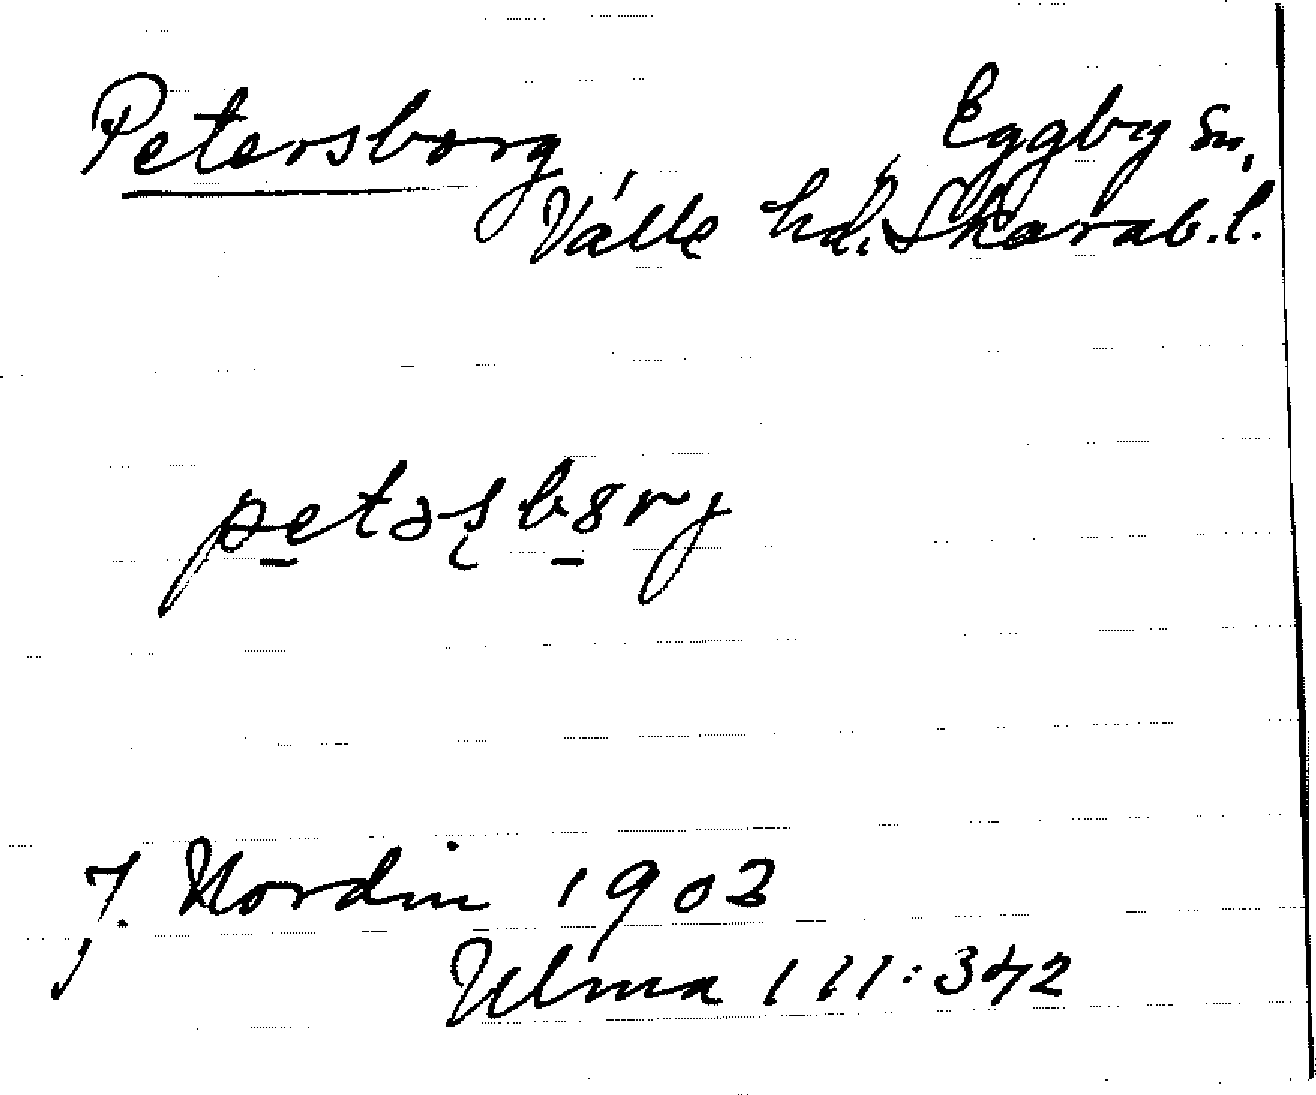 Petersborg Eggby sn,
Valle hd, Skarab.l.
petəʂbɞrg
J. Nordin 1903
Ulma 111:342